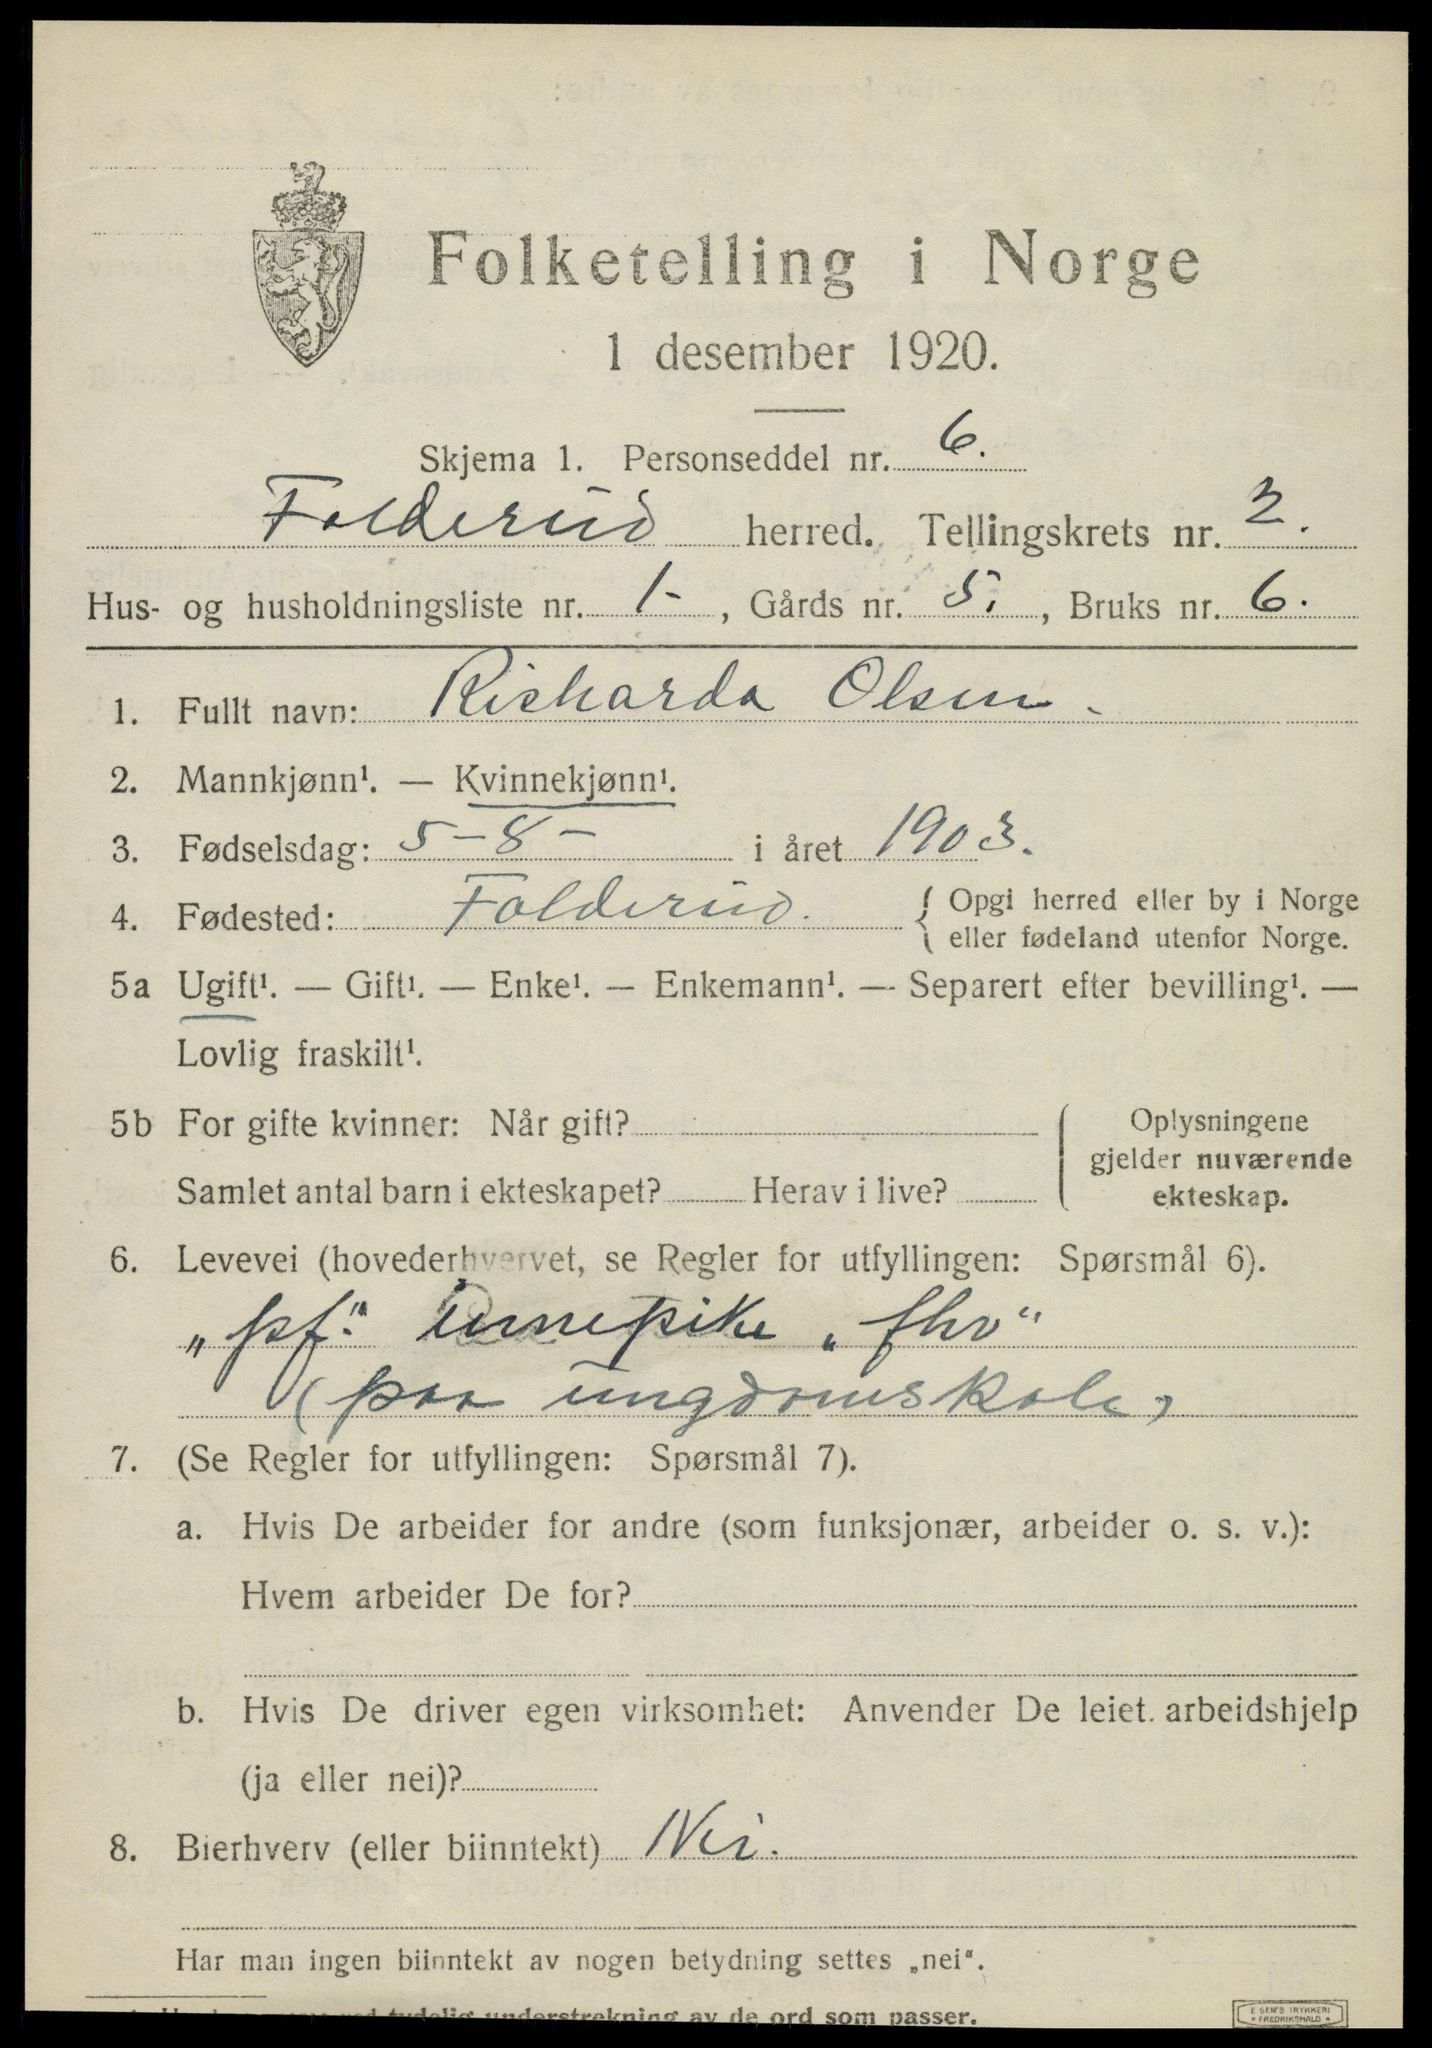 Folketelling i Norge
1 desember 1920.
Skjema 1. Personseddel nr. 6.
Foldereid herred. Tellingskrets nr. 2.
Hus- og husholdningsliste nr. 1-, Gårds nr. 5., Bruks nr. 6.
1. Fullt navn: Richarda Olsen.
2. Mannkjønn¹. — Kvinnekjønn¹.
3. Fødselsdag: 5-8- i året 1903.
4. Fødested: Foldereid. { Opgi herred eller by i Norge
eller fødeland utenfor Norge.
5a Ugift¹. — Gift¹. — Enke¹. — Enkemann¹. — Separert efter bevilling¹. —
Lovlig fraskilt¹.
5b For gifte kvinner: Når gift?
Samlet antal barn i ekteskapet? Herav i live?
Oplysningene
gjelder nuværende
ekteskap.
6. Levevei (hovederhvervet, se Regler for utfyllingen: Spørsmål 6).
„pf." innepike „fhv"
(paa ungdomskole)
7. (Se Regler for utfyllingen: Spørsmål 7).
a. Hvis De arbeider for andre (som funksjonær, arbeider o. s. v.):
Hvem arbeider De for?
b. Hvis De driver egen virksomhet: Anvender De leiet arbeidshjelp
(ja eller nei)?
8. Bierhverv (eller biinntekt) Nei.
Har man ingen biinntekt av nogen betydning settes „nei".
tydelig understrekning av de ord som passer.
E SEM'S TRYKKERI
* FREDRIKSHALD *